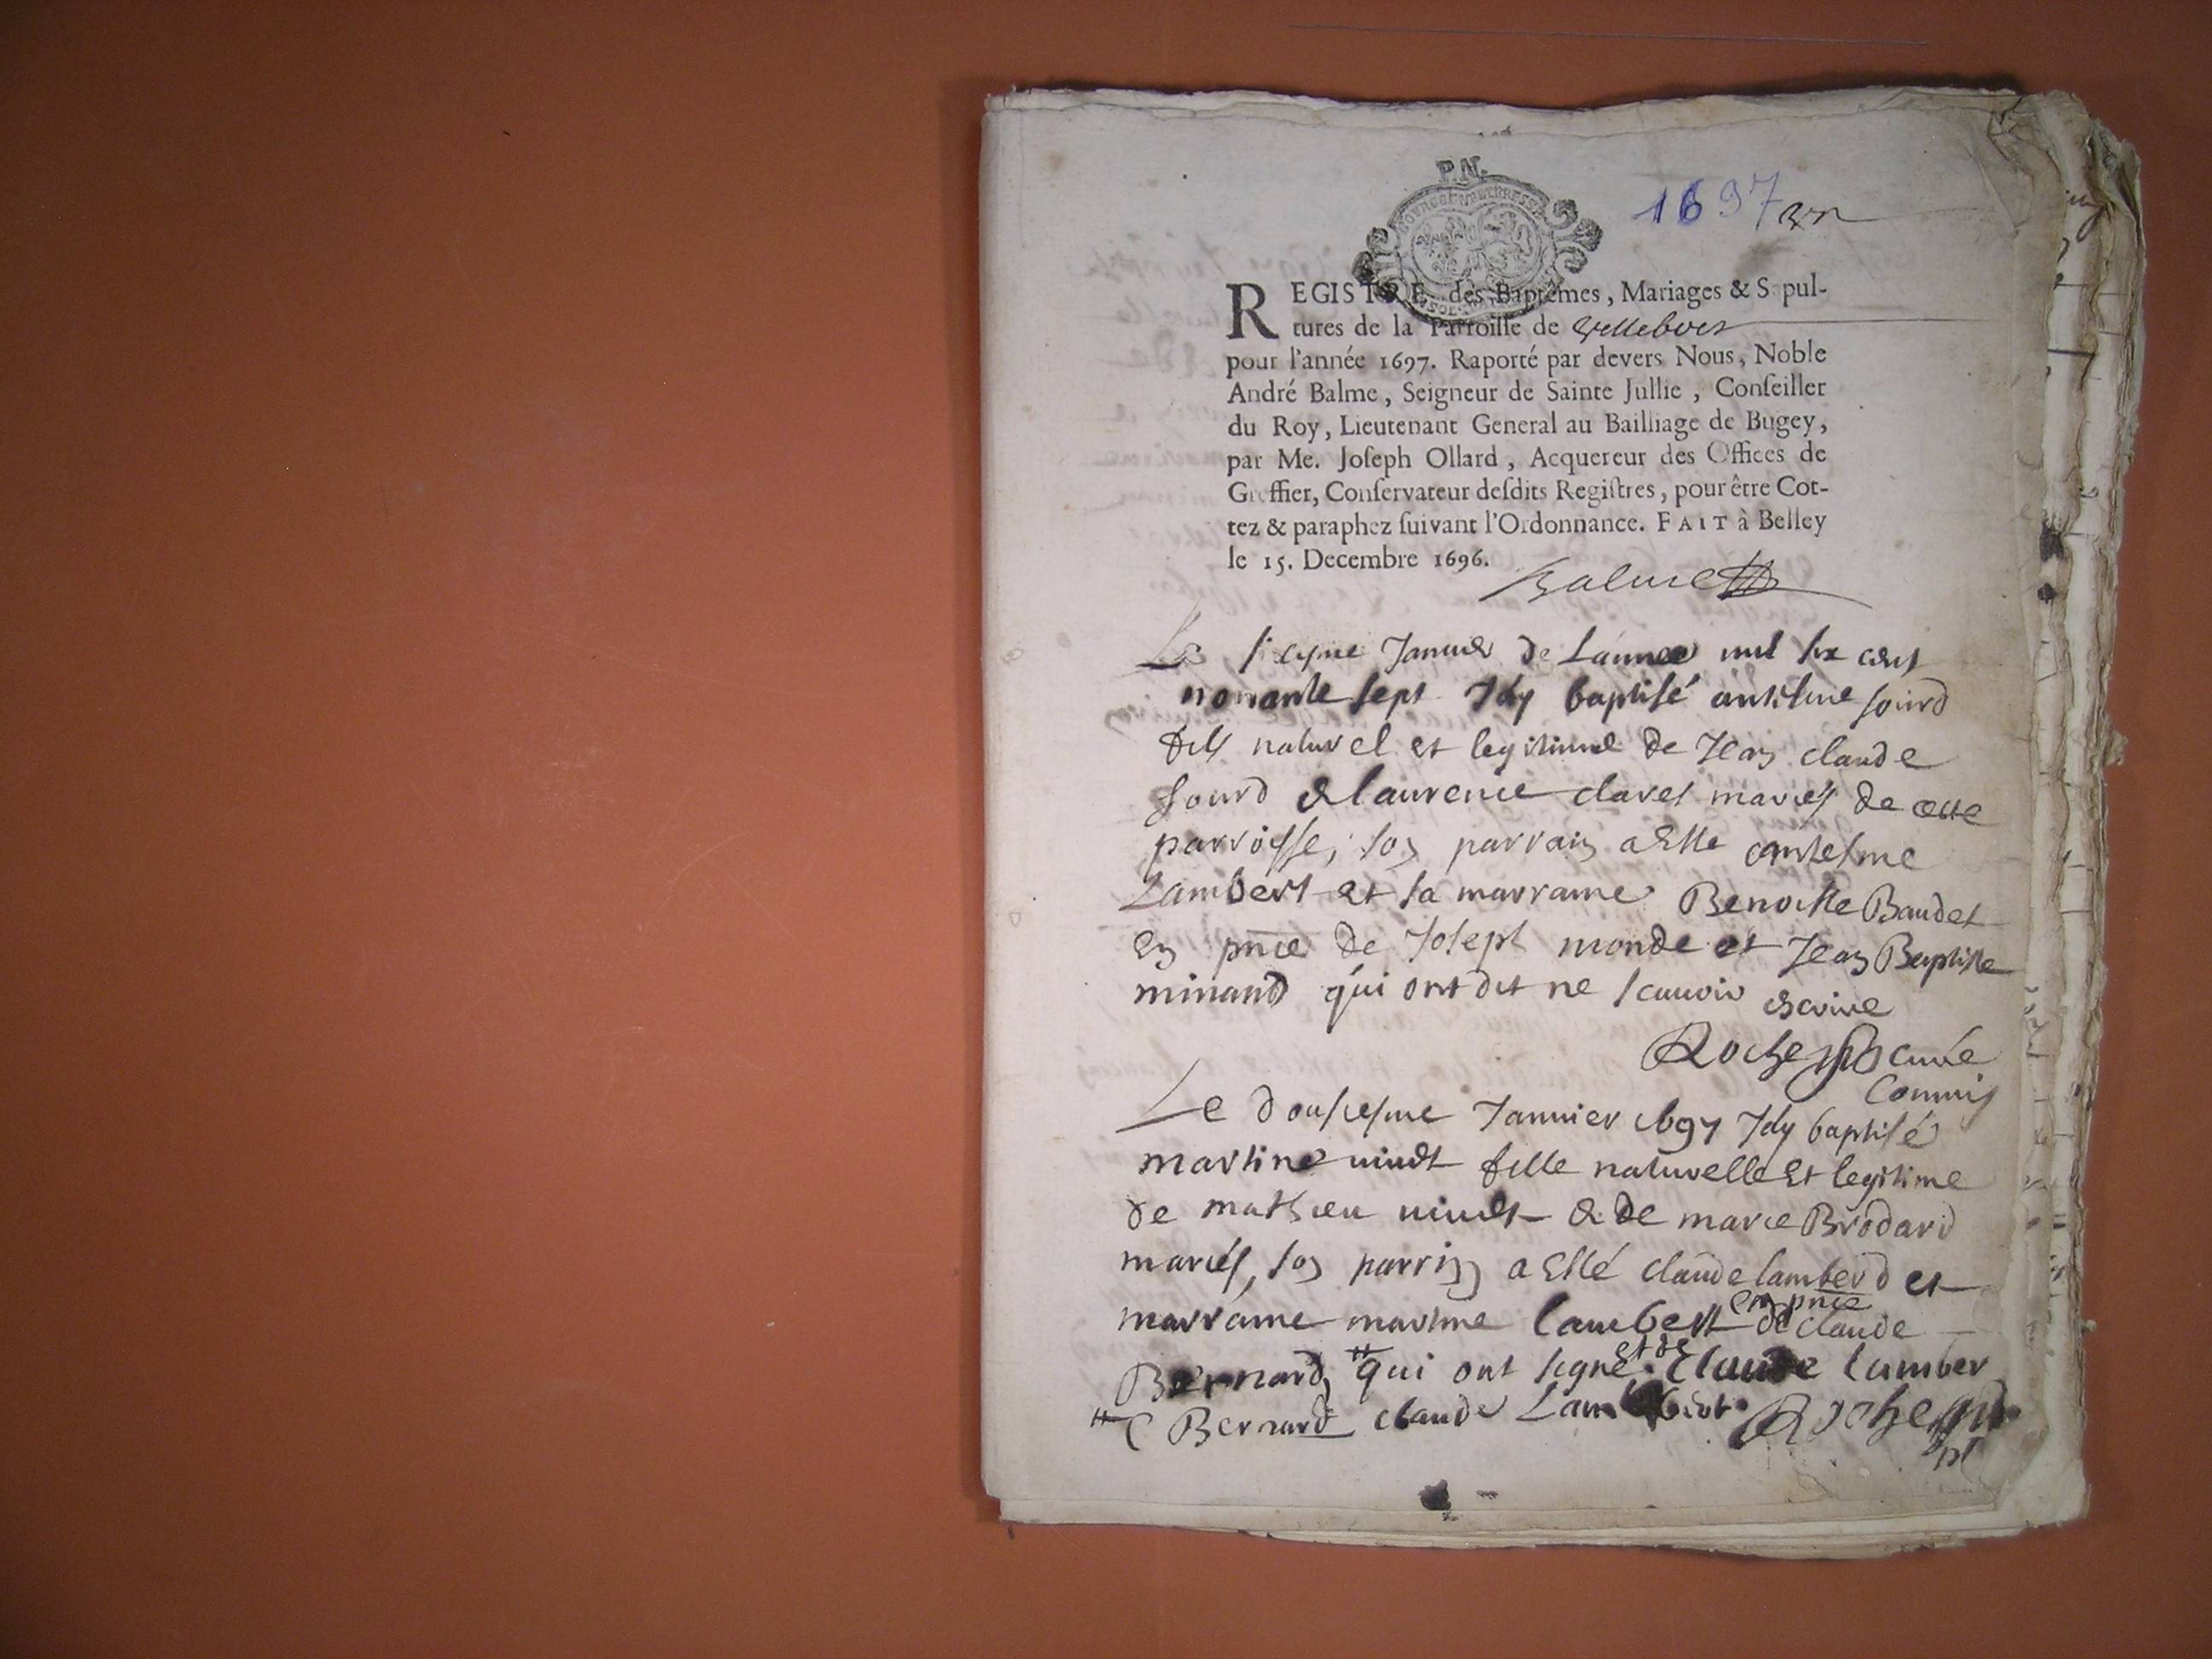 P.N.
1697
REGISTRE des Baptêmes, Mariages & Sepul-
tures de la Parroisse de Villebois
pour l'année 1697. Raporté par devers Nous, Noble
André Balme, Seigneur de Sainte Jullie, Conseiller
du Roy, Lieutenant General au Bailliage de Bugey,
par Me. Joseph Ollard, Acquereur des Offices de
Greffier, Conservateur desdits Registres, pour être Cot-
tez & paraphez suivant l'Ordonnance. FAIT à Belley
le 15. Decembre 1696.
Balme
Le Janvier de Lannee mil six cent
nonante sept Jay baptisé antelme sourd
fils naturel et legitime de Jean claude
sourd & laurence claret mariés de cette
parroisse, son parrain a esté antelme
Lambert et sa marraine Benoitte Baudet
en pnce de Joseph monde et Jean Baptiste
minand qui ont dit ne scauoir escrire
Roche curé
Commis
Le dousiesme Januier 1697 Jay baptisé
martine uiuet fille naturelle et legitime
de mathieu uiuet & de marie Brodard
mariés, son parrin a esté claude lamberd et
marraine martine lambert en pnce de claude
Bernard qui ont signé et de Claude lamber
C Bernard claude Lambert Roche